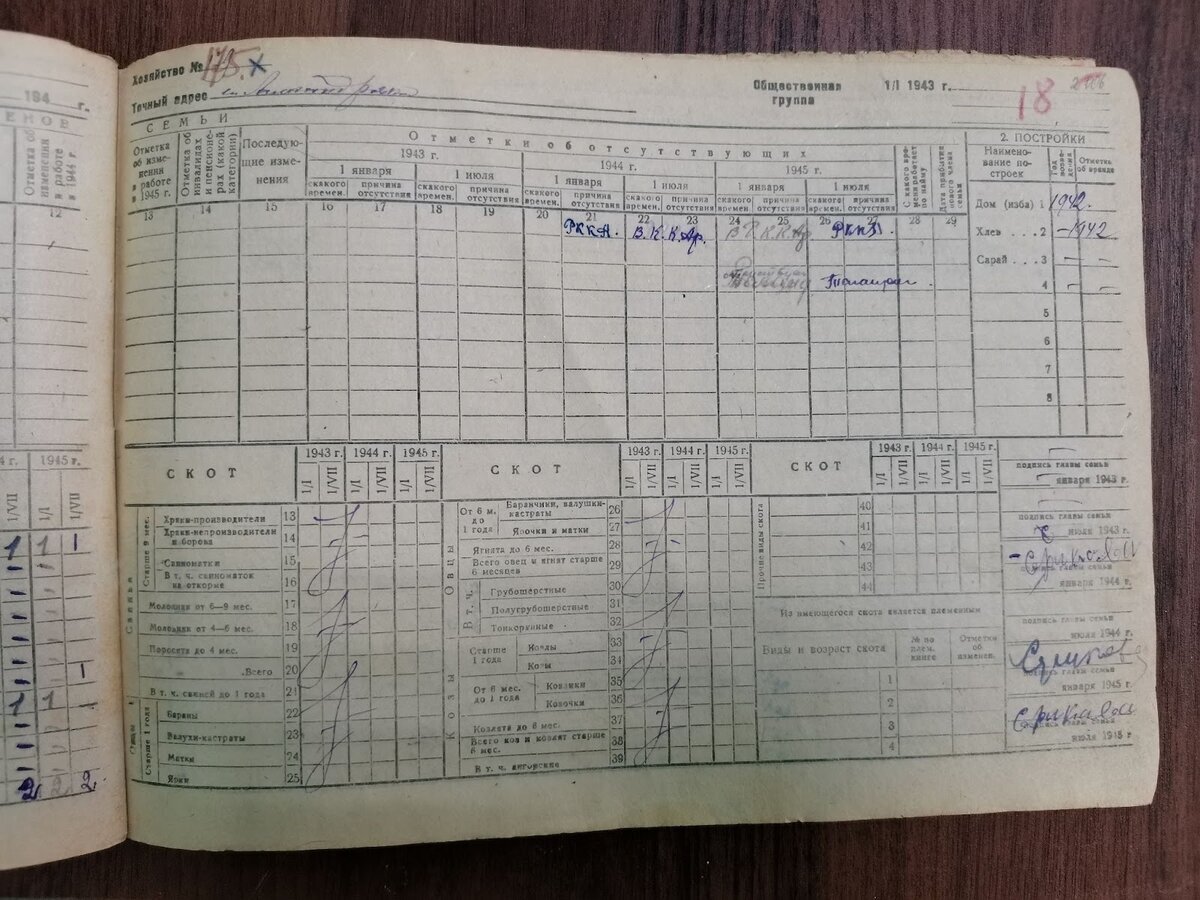 194 г.
ЕНОВ
Отметка об изменении в работе в 1944 г.
12
4 г. 1945 г.
1/VII 1/I 1/VII
1 1 1
1
1 1
2 2 2
Хозяйство № 175
Точный адрес
Общественная группа
1/I 1943 г.
18
СЕМЬИ
Отметки об отсутствующих
2. ПОСТРОЙКИ
Отметка об изменении в работе в 1945 г.
Отметка об инвалидах и пенсионерах (какой категории)
Последующие изменения
1943 г.
1944 г.
1945 г.
1 января 1 июля 1 января 1 июля 1 января 1 июля
с какого времен. причина отсутствия с какого времен. причина отсутствия с какого времен. причина отсутствия с какого времен. причина отсутствия с какого времен. причина отсутствия с какого времен. причина отсутствия
С какого времени работает по найму
Дата прибытия нового члена семьи
Наименование построек
Год возведения
Отметка об аренде
13 14 15 16 17 18 19 20 21 22 23 24 25 26 27 28 29
РККА. В. К. К. Ар.
Дом (изба) 1 1942.
Хлев . . . 2 1942
Сарай . . . 3
4
5
6
7
8
СКОТ
1943 г. 1944 г. 1945 г.
1/I 1/VII 1/I 1/VII 1/I 1/VII
Свиньи
Старше 9 мес.
Хряки-производители 13
Хряки-непроизводители и борова 14
Свиноматки 15
В т. ч. свиноматок на откорме 16
Молодняк от 6—9 мес. 17
Молодняк от 4—6 мес. 18
Поросята до 4 мес. 19
Всего 20
В т. ч. свиней до 1 года 21
Овцы
Старше 1 года
Бараны 22
Валухи-кастраты 23
Матки 24
Ярки 25
СКОТ
1943 г. 1944 г. 1945 г.
1/I 1/VII 1/I 1/VII 1/I 1/VII
Овцы
От 6 м. до 1 года
Баранчики, валушки-кастраты 26
Ярочки и матки 27
Ягнята до 6 мес. 28
Всего овец и ягнят старше 6 месяцев 29
В т. ч.
Грубошерстные 30
Полугрубошерстные 31
Тонкорунные 32
Козы
Старше 1 года
Козлы 33
Козы 34
От 6 мес. до 1 года
Козлики 35
Козочки 36
Козлята до 6 мес. 37
Всего коз и козлят старше 6 мес. 38
В т. ч. ангорские 39
СКОТ
1943 г. 1944 г. 1945 г.
1/I 1/VII 1/I 1/VII 1/I 1/VII
Прочие виды скота
40
41
42
43
44
Из имеющегося скота является племенным
Виды и возраст скота
№ по плем. книге
Отметки об изменен.
1
2
3
4
подпись главы семьи
января 1943 г.
подпись главы семьи
июля 1943 г.
подпись главы семьи
января 1944 г.
подпись главы семьи
июля 1944 г.
подпись главы семьи
января 1945 г.
подпись главы семьи
июля 1945 г.